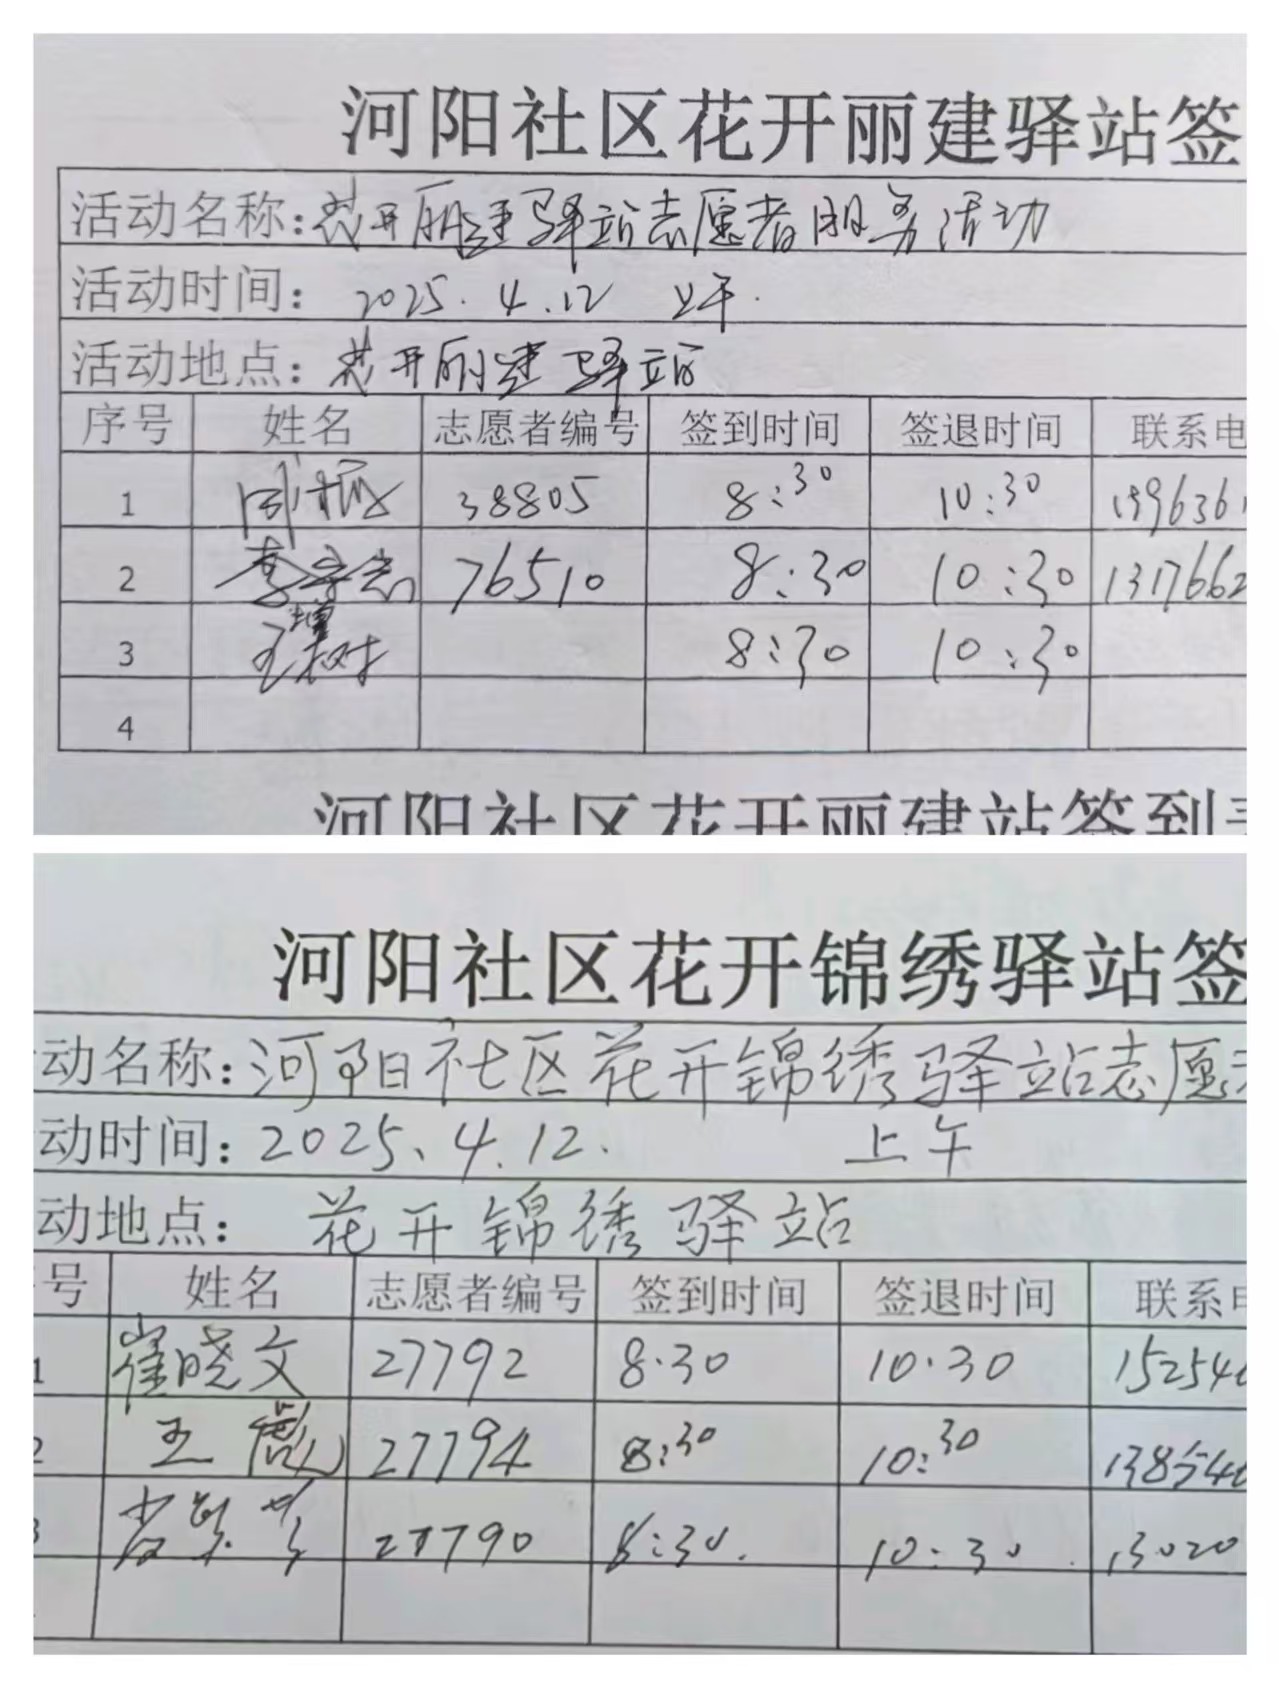 河阳社区花开丽建驿站签
活动名称：花开丽建驿站志愿者服务活动
活动时间： 2025.4.12 上午.
活动地点：花开丽建驿站
序号 姓名 志愿者编号 签到时间 签退时间 联系电
1 38805 8:30 10:30 199636
2 李守志 76510 8:30 10:30 1317662
3 王增树 8:30 10:30
4
河阳社区花开丽建站签到
动名称：河阳社区花开锦绣驿站志愿
动时间：2025、4.12. 上午
动地点： 花开锦绣驿站
号 姓名 志愿者编号 签到时间 签退时间 联系
1 崔晓文 27792 8·30 10·30 15254
2 王彪 27794 8:30 10:30 13854
3 27790 8:30. 10:30 13020